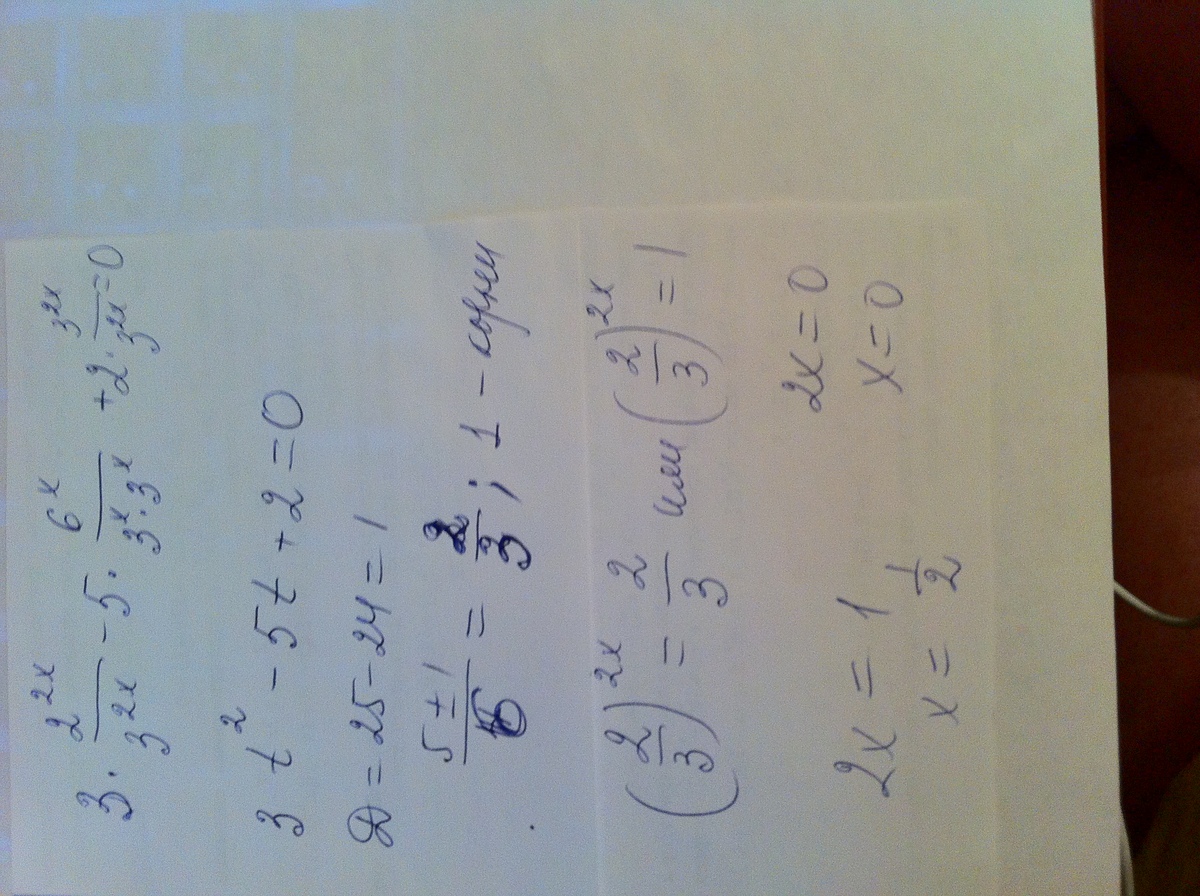 3 · 2^{2x}/3^{2x} - 5 · 6^x/(3^x · 3^x) + 2 · 3^{2x}/3^{2x} = 0
3t^2 - 5t + 2 = 0
D = 25 - 24 = 1
(5 ± 1)/6 = 2/3; 1 - корни
(2/3)^{2x} = 2/3 или (2/3)^{2x} = 1
2x = 1 2x = 0
x = 1/2 x = 0